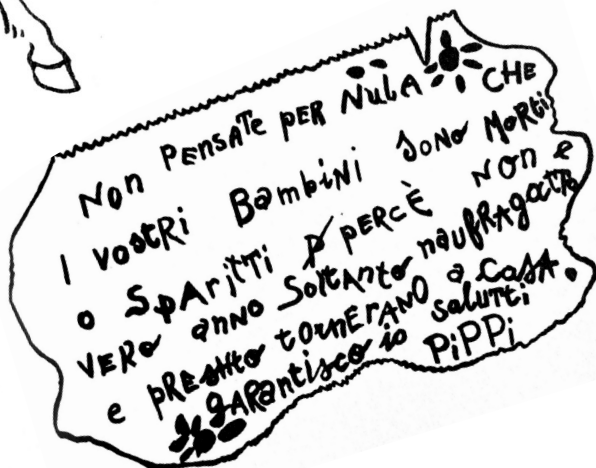 Non PEnsATe pER NulA CHE
I vostRi BambiNi SoNo MoRti
o SpArjtTi pERcÈ NoN e
VERo anNo SoltAnto naufRAgatto
e pREstto toRnERANO a CaSA.
gARantisco io saluTti
PiPPi